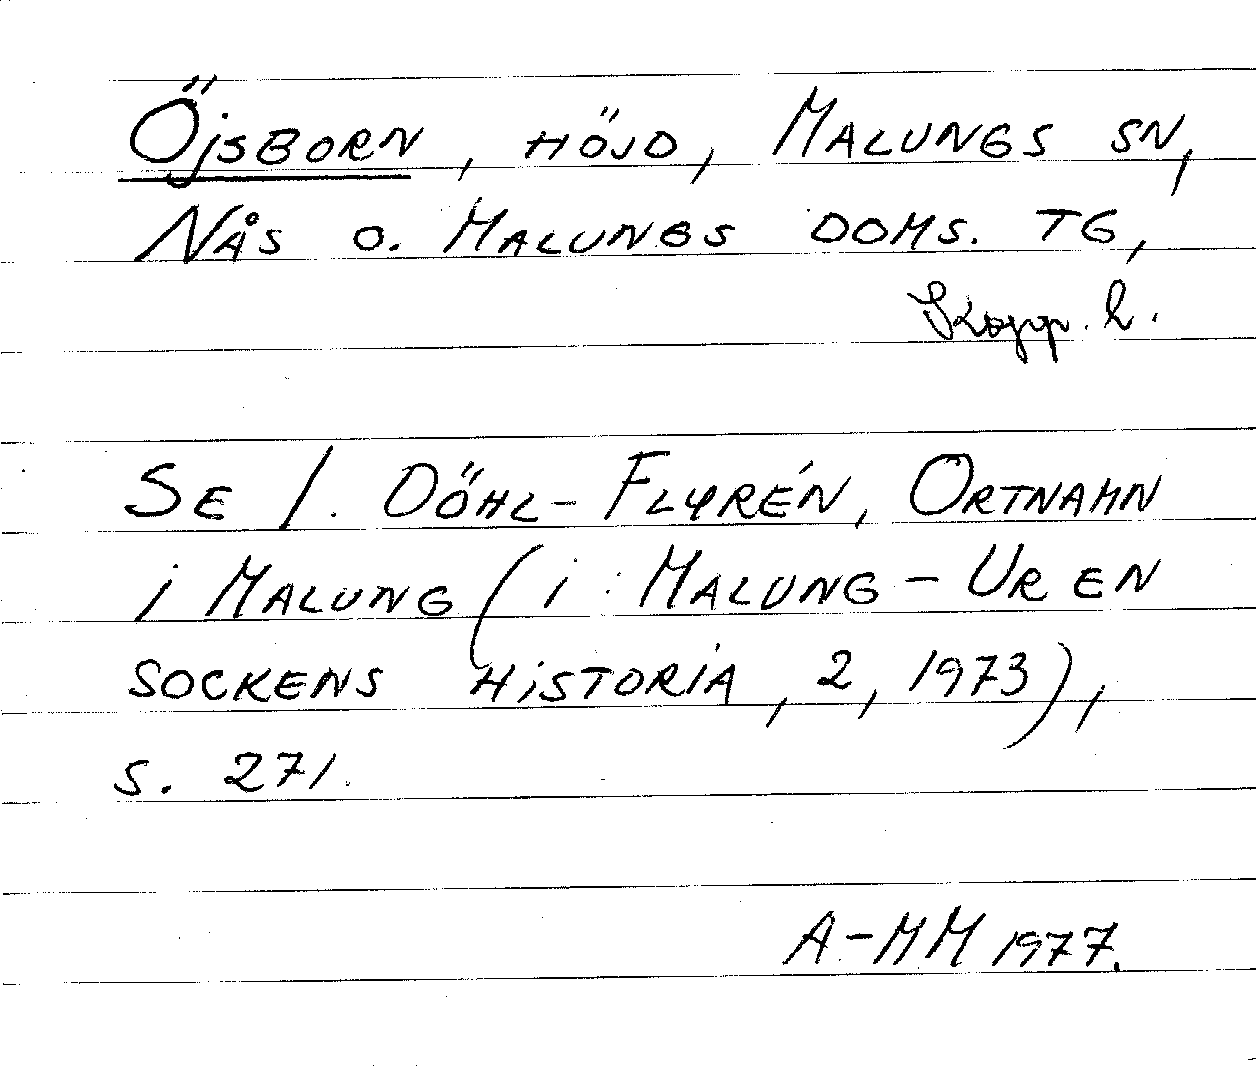 Öjsborn, höjd, Malungs sn,
Nås o. Malungs doms. tg,
Kopp. l.
Se I. Döhl-Flyrén, Ortnamn
i Malung (i: Malung - Ur en
sockens historia, 2, 1973),
s. 271.
A-MM 1977.